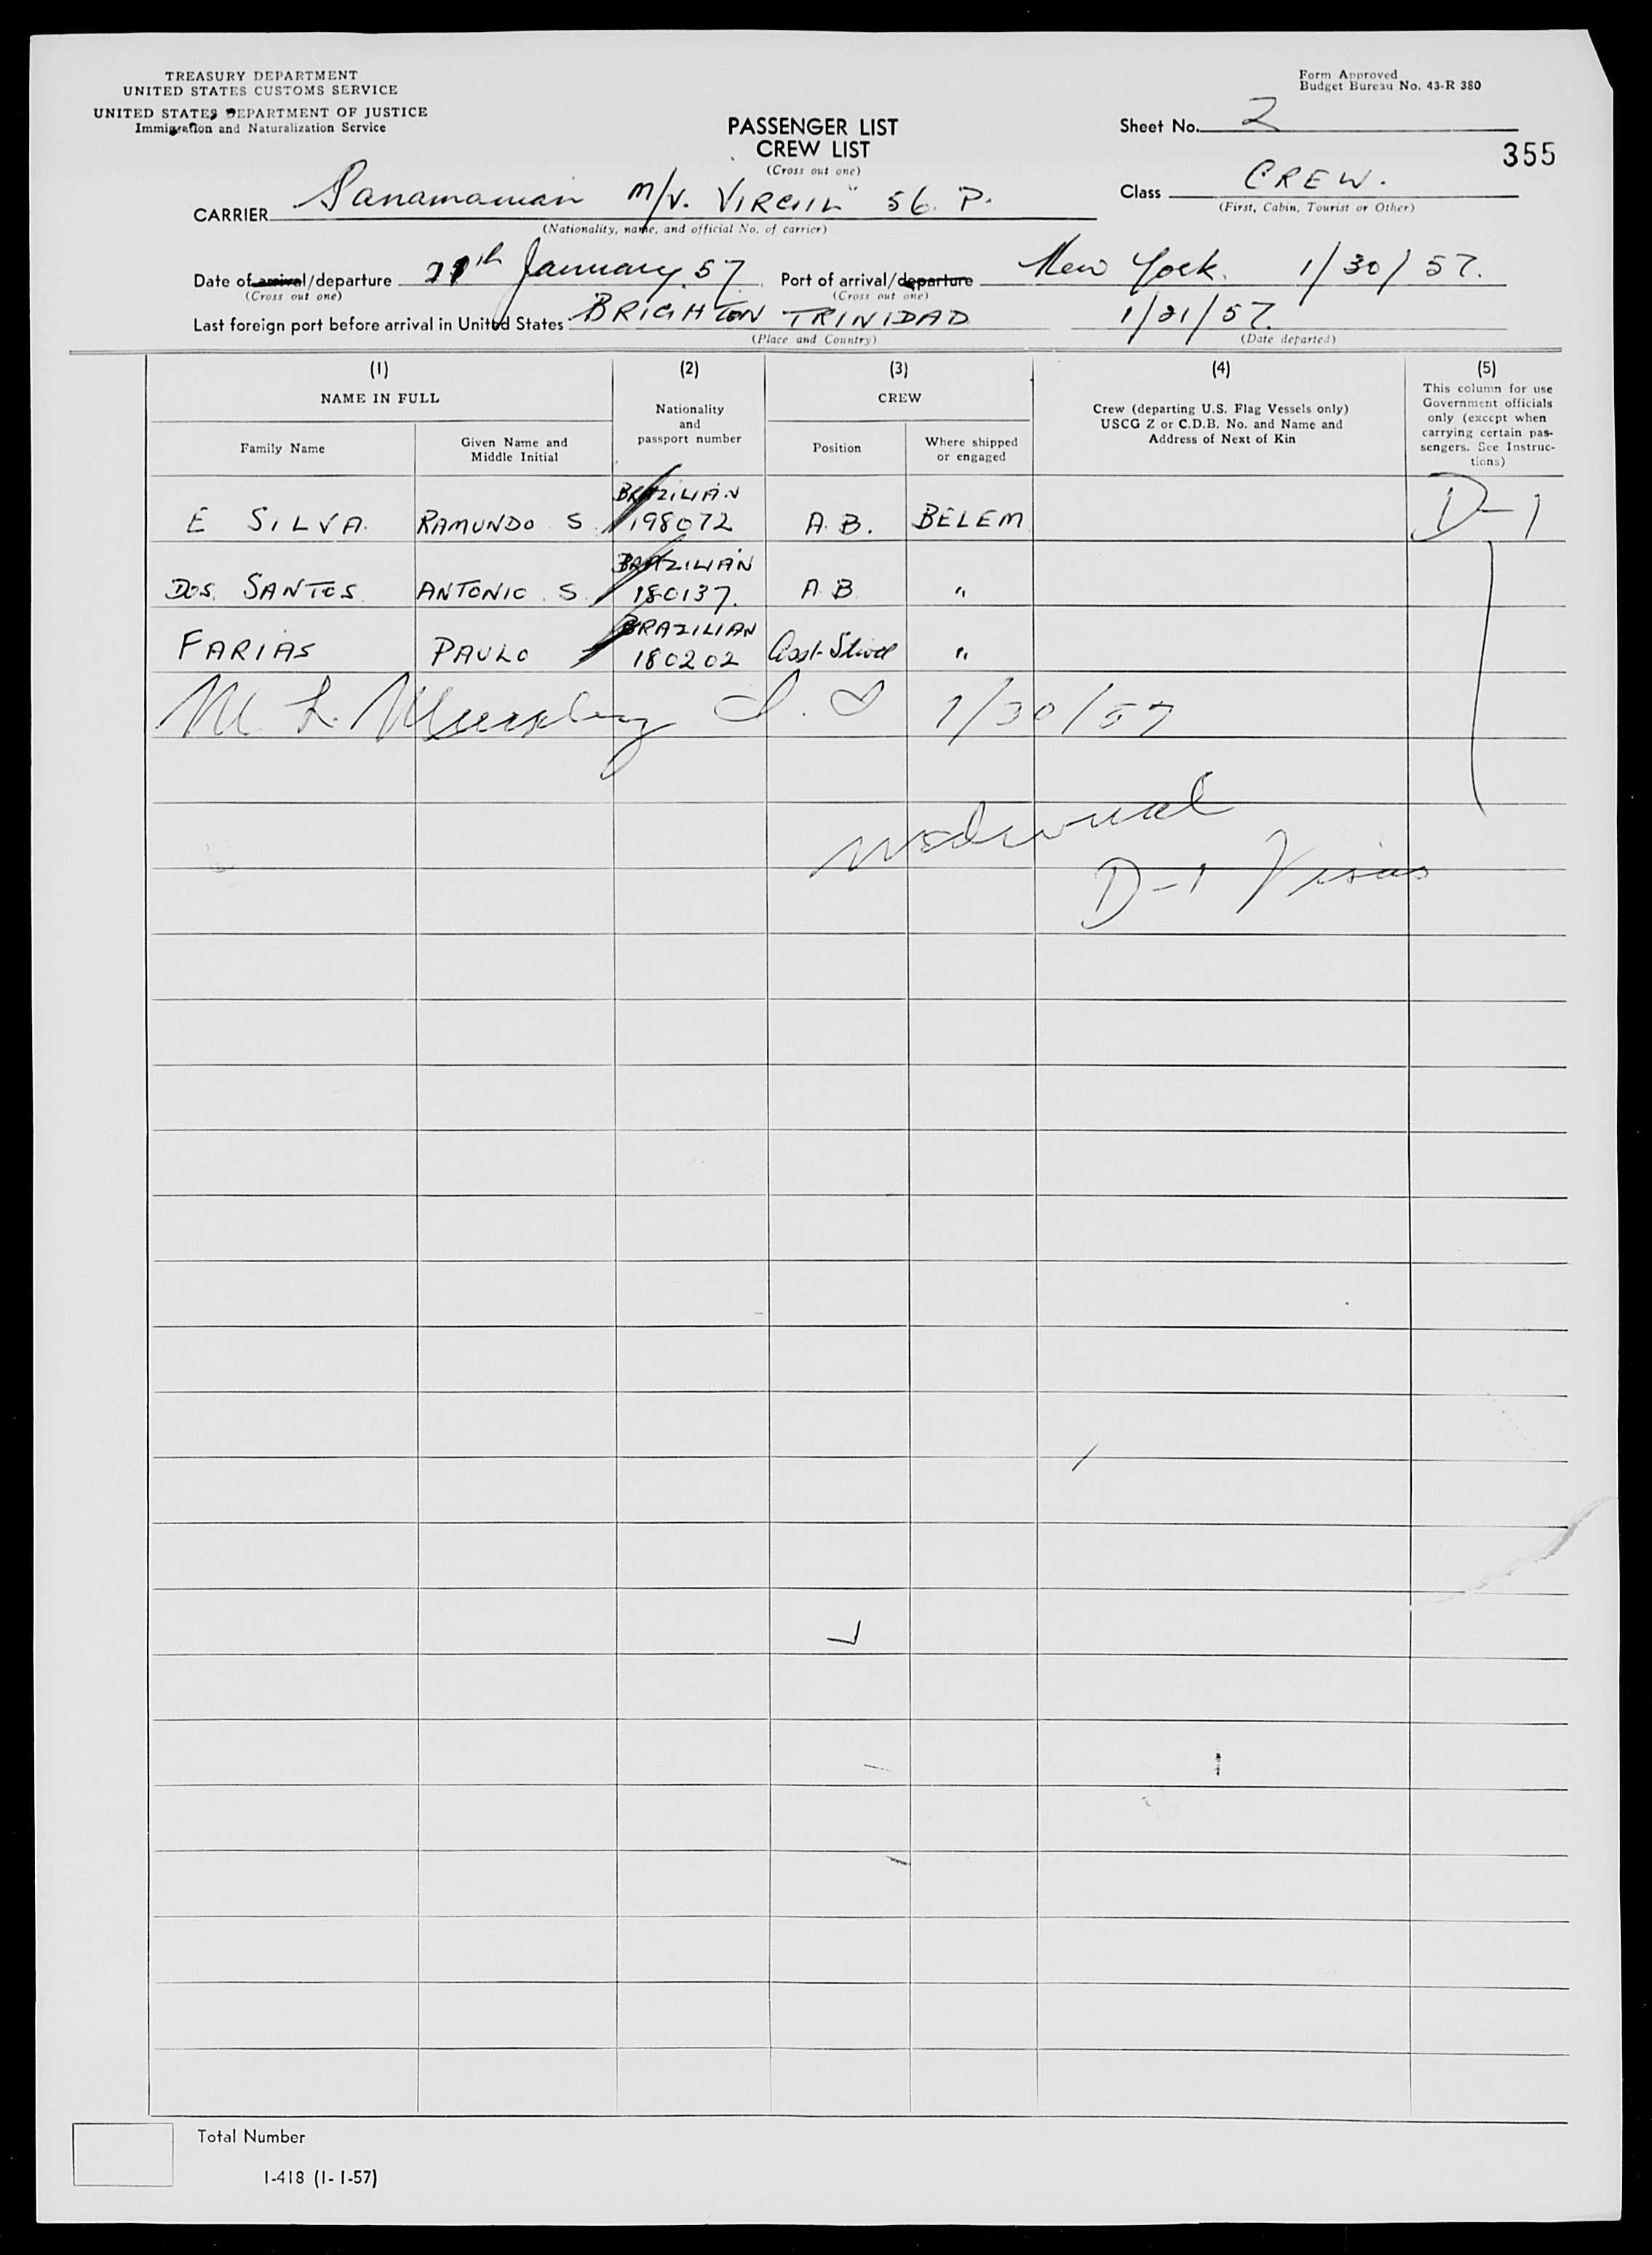 TREASURY DEPARTMENT
UNITED STATES CUSTOMS SERVICE
UNITED STATES DEPARTMENT OF JUSTICE
Immigration and Naturalization Service
Form Approved
Budget Bureau No. 43-R 380
PASSENGER LIST
CREW LIST
(Cross out one)
Sheet No. 2
355
Class CREW.
(First, Cabin, Tourist or Other)
CARRIER Panamanian M/V. VIRGIL" 56. P.
(Nationality, name, and official No. of carrier)
Date of arrival/departure 21th January. 57. Port of arrival/departure New York. 1/30/57.
(Cross out one) (Cross out one)
Last foreign port before arrival in United States BRIGHTON TRINIDAD 1/21/57.
(Place and Country) (Date departed)
(1) (2) (3) (4) (5)
NAME IN FULL
Family Name
Given Name and
Middle Initial
Nationality
and
passport number
CREW
Position
Where shipped
or engaged
Crew (departing U.S. Flag Vessels only)
USCG Z or C.D.B. No. and Name and
Address of Next of Kin
This column for use
Government officials
only (except when
carrying certain pas-
sengers. See Instruc-
tions)
BRAZILIAN
E SILVA. RAMUNDO S. 198072 A.B. BELEM D-1
BRAZILIAN
DOS. SANTOS ANTONIO. S. 180137. A.B "
BRAZILIAN
FARIAS PAULO 180202 Asst. Stwd "
M L. Murphy 1/30/57
D-1 Visas
Total Number
I-418 (1-1-57)